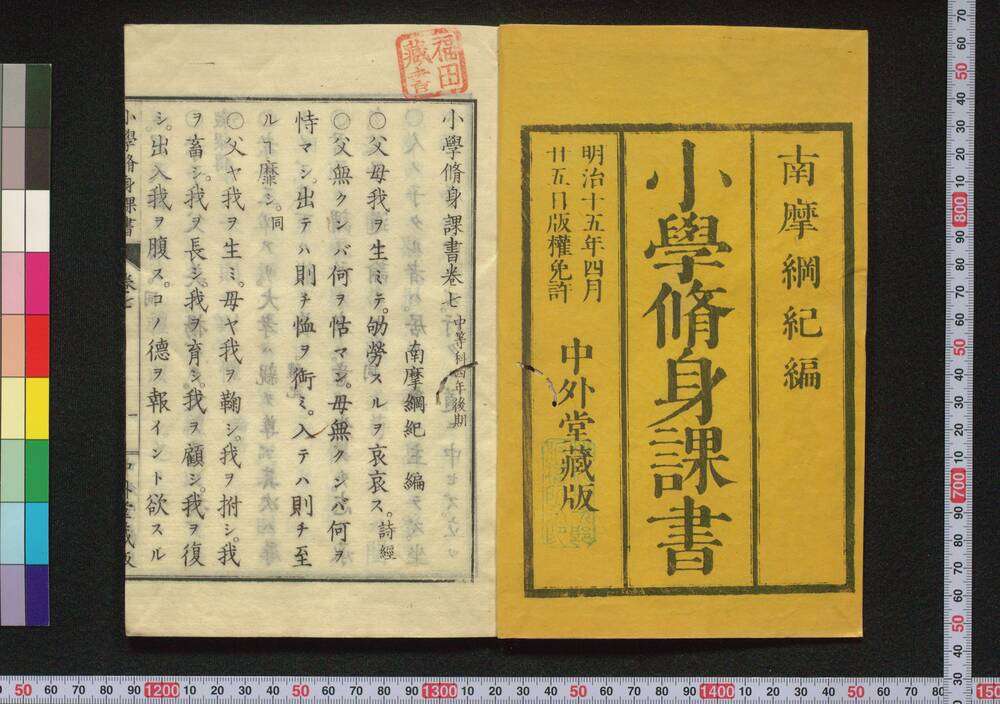 南摩綱紀編
小學脩身課書
明治十五年四月
廿五日版權免許
中外堂藏版
福田
藏書
小學脩身課書卷七 中等科四年後期
南摩綱紀編
○父母我ヲ生ミテ。劬勞スルヲ哀哀ス。詩經
○父無クンバ何ヲ怙マン。母無クンバ何ヲ
恃マン。出テハ則チ恤ヲ。銜ミ。入テハ則チ至
ルヿ靡シ。同
○父ヤ我ヲ生ミ。母ヤ我ヲ鞠シ。我ヲ拊シ。我
ヲ畜シ。我ヲ長シ。我ヲ育シ。我ヲ顧シ。我ヲ復
シ。出入我ヲ腹ス。コノ德ヲ報イント欲スル
小學脩身課書 卷七 一 中外堂藏版
50 60 70 80 90 1200 10 20 30 40 50 60 70 80 90 1300 10 20 30 40 50 60 70 80 90 1400 10 20 30 40 50 60 70 80 90 150
70 60 50 40 30 20 10 800 90 80 70 60 50 40 30 20 10 700 90 80 70 60 50 40 30